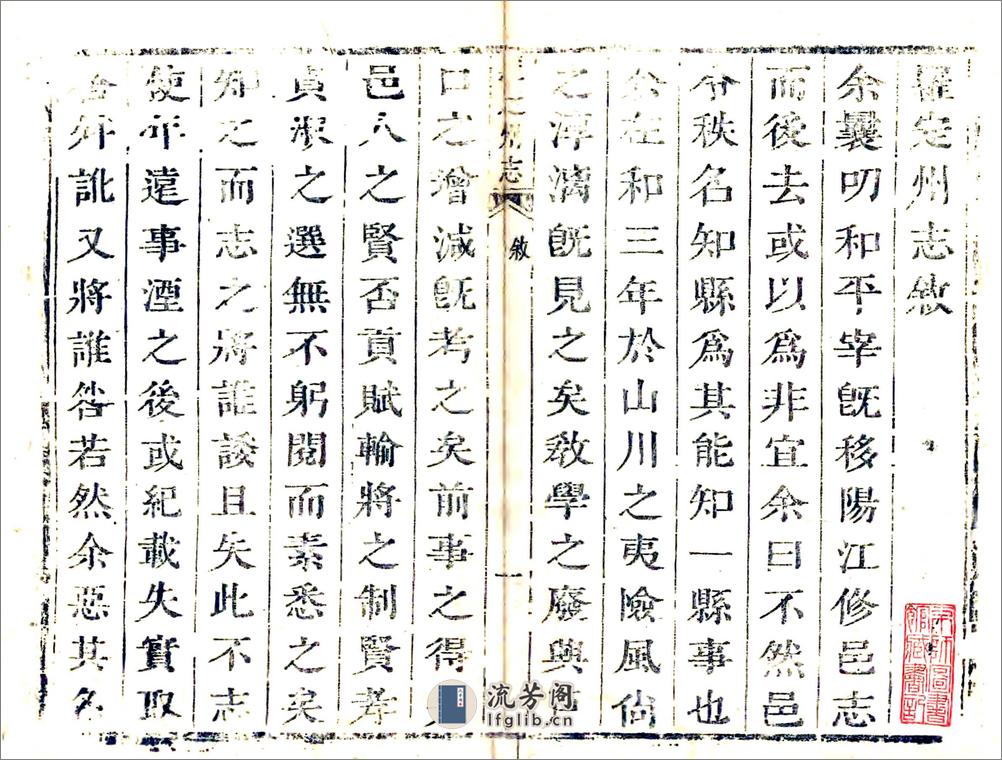 羅定州志敘
余曩叨和平宰旣移陽江修邑志
而後去或以爲非宜余曰不然邑
令秩名知縣爲其能知一縣事也
余在和三年於山川之夷險風尙
之淳漓旣見之矣敎學之廢興
州志
敘
一
口之增減旣考之矣前事之得
邑人之賢否貢賦輸將之制賢孝
貞淑之選無不躬閱而素悉之矣
知之而志之將誰諉且失此不志
使年遠事湮之後或紀載失實取
舛訛又將誰咎若然余惡其名
流芳阁
lfglib.cn